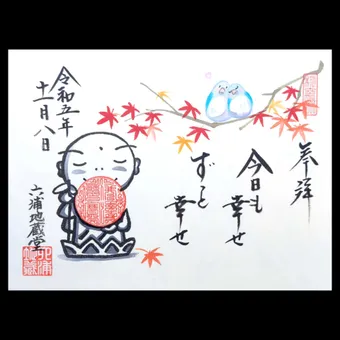 奉拝
今日も幸せ
ずっと幸せ
令和五年
十一月八日
六浦地蔵堂